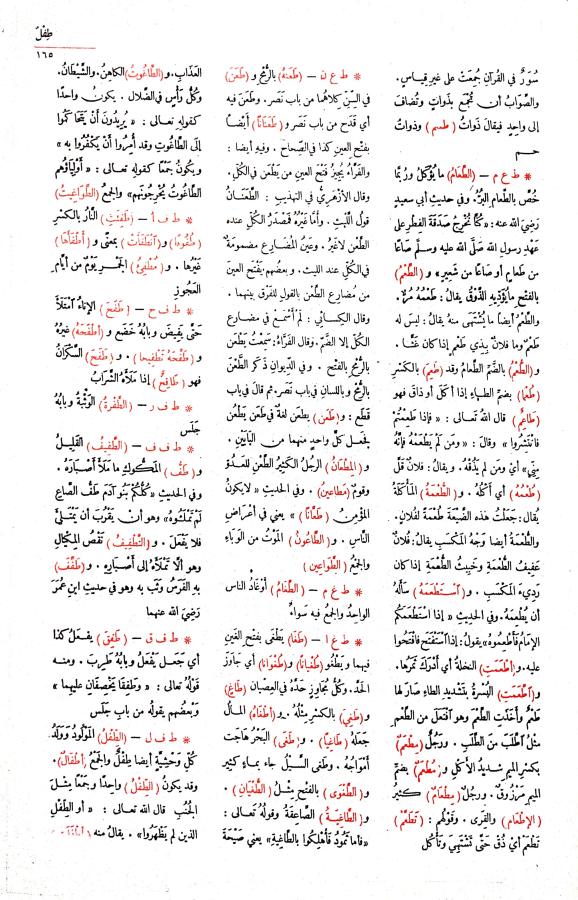 طِفْلٌ
١٦٥
سُوَرٌ في القُرآنِ جُمِعَتْ على غيرِ قِياسٍ.
والصَّوابُ أن تُجْمَع بذَواتِ وتُضافَ
إلى واحِدٍ فيقالَ ذَواتُ (طسم) وذواتُ
حم
* ط ع م – (الطَّعَامُ) ما يُؤكَلُ ورُبَّما
خُصَّ بالطَّعامِ البُرُّ. وفي حديثِ أبي سعيدٍ
رَضِيَ اللهُ عنه: «كُنَّا نُخْرِجُ صَدَقةَ الفِطرِ على
عَهْدِ رسولِ الله صَلَّى الله عليه وسلَّم صاعًا
من طَعامٍ أو صاعًا من شَعِيرٍ» و (الطَّعْمُ)
بالفتح ما يُؤدِّيهِ الذَّوْقُ يقالُ: طَعْمُهُ مُرٌّ.
والطَّعْمُ أيضا ما يُشْتَهى منه يقالُ: ليس له
طَعْمٌ وما فلانٌ بِذِي طَعْمٍ إذا كان غَثًّا.
و (الطُّعْمُ) بالضَّمِّ الطَّعامُ وقد (طَعِمَ) بالكَسْرِ
(طُعْمًا) بضم الطاءِ إذا أكلَ أو ذاقَ فهو
(طاعِمٌ) قال اللهُ تعالى: «فإذا طَعِمْتُمْ
فانْتَشِرُوا» وقالَ: «ومَن لَمْ يَطْعَمْهُ فإنَّهُ
مِنِّي» أي ومَن لم يَذُقْهُ. ويقالُ: فلانٌ قَلَّ
(طُعْمُهُ) أي أكْلُهُ. و (الطُّعْمَةُ) المَأكَلَةُ
يقالُ: جَعَلْتُ هذه الضَّيْعَةَ طُعْمَةً لفلانٍ.
والطُّعْمَةُ أيضا وَجْهُ المَكْسَبِ يقالُ: فُلانٌ
عَفِيفُ الطُّعْمَةِ وخَبِيثُ الطُّعْمَةِ إذا كان
رَدِيءَ المَكْسَبِ. و (اسْتَطْعَمَهُ) سَأَلَهُ
أن يُطْعِمَهُ. وفي الحديثِ «إذا اسْتَطْعَمَكُم
الإمَامُ فأطْعِمُوهُ» يقولُ: إذا اسْتَفْتَحَ فافْتَحوا
عليه. و (أطْعَمَتِ) النخلةُ أي أدْرَكَ ثَمَرُها.
و (اطَّعَمَتِ) البُسْرةُ بتَشديدِ الطاءِ صارَ لها
طَعْمٌ وأخَذَتِ الطَّعْمَ وهو افتَعَلَ من الطَّعْمِ
مثلُ اطَّلَبَ من الطَّلَبِ. ورَجُلٌ (مِطْعَمٌ)
بكسرِ الميمِ شديدُ الأكلِ و (مُطْعَمٌ) بضمِّ
الميمِ مَرْزوقٌ. ورجُلٌ (مِطْعَامٌ) كثيرُ
(الإطْعامِ) والقِرَى. وقولُهم: (تَطَعَّمْ)
تَطْعَمْ أي ذُقْ حَتَّى تَشْتَهِيَ وتَأكُلَ
* ط ع ن – (طَعَنَهُ) بالرُّمحِ و (طَعَنَ)
في السِّنِّ كلاهُما من بابِ نَصَر. وطَعَن فيه
أي قَدَحَ من باب نَصَر و (طَعَنَانًا) أيضًا
بفتحِ العينِ كذا في الصِّحاحِ. وفيه أيضا:
والفَرَّاءُ يُجِيزُ فتحَ العينِ من يَطْعَنُ في الكُلِّ.
وقال الأزهريُّ في التهذيبِ: الطَّعَنَانُ
قولُ اللَّيث. وأمَّا غيرُهُ فَمصْدَرُ الكُلِّ عنده
الطَّعْنُ لاغيرُ. وعَينُ المُضارعِ مضمومةٌ
في الكُلِّ عند الليث. وبعضُهم يَفْتَحُ العينَ
من مُضارِعِ الطَّعْنِ بالقولِ للفَرْقِ بينهما.
وقالَ الكِسائيُّ: لم أسْمَعْ في مضارعِ
الكُلِّ إلا الضَّمَّ. وقالَ الفَرَّاءُ: سَمِعْتُ يَطْعَنُ
بالرُّمْحِ بالفتحِ. وفي الدِّيوانِ ذَكَرَ الطَّعْنَ
بالرُّمْحِ وباللِّسانِ في بابِ نَصَرَ. ثم قالَ في بابِ
قَطَع: و (طَعَن) يطعَنُ لغةٌ في طَعَنَ يَطْعُنُ
فجعلَ كلَّ واحدٍ منهما من البَابَيْنِ.
و (المِطْعَانُ) الرجُلُ الكَثيرُ الطَّعْنِ للعدُوِّ
وقومٌ (مَطَاعِينُ). وفي الحديثِ «لايكونُ
المُؤمنُ (طَعَّانًا)» يعني في أعْراضِ
النَّاس. و (الطَّاعُونُ) المَوْتُ من الوَباءِ
والجمعُ (الطَّواعِينُ)
* ط غ م – (الطَّغَامُ) أوْغادُ الناسِ
الواحدُ والجمعُ فيه سَواءٌ
* ط غ ا – (طَغَا) يَطْغَى بفتح الغَينِ
فيهما ويَطْغُو (طُغْيانًا) و (طُغْوَانًا) أي جاوَزَ
الحَدَّ. وكلُّ مُجاوِزٍ حَدَّهُ في العِصيانِ (طاغٍ)
و (طَغِيَ) بالكَسْرِ مثلُهُ. و (أطْغَاهُ) المالُ
جَعلَهُ (طاغِيًا). و (طَغَى) البَحْرُ هاجَتْ
أمْوَاجُهُ. وطَغَى السَّيْلُ جاء بماءٍ كثيرٍ
و (الطَّغْوَى) بالفتحِ مِثلُ (الطُّغْيَانِ).
و (الطَّاغِيَةُ) الصَّاعِقَةُ وقولُهُ تعالى:
«فاما ثَمودُ فأُهْلِكُوا بالطَّاغِيةِ» يعني صَيْحَةَ
العَذابِ. و (الطَّاغُوتُ) الكاهِنُ. والشَّيْطَانُ.
وكُلُّ رأسٍ في الضَّلالِ. يكونُ واحدًا
كقولِهِ تعالى: «يُرِيدُونَ أنْ يَتَحَاكَمُوا
إلَى الطَّاغُوتِ وقد أُمِرُوا أنْ يَكْفُرُوا بِهِ»
ويكونُ جَمْعًا كقولِهِ تعالى: «أوْلِياؤُهُم
الطَّاغوتُ يُخْرِجُونَهم» والجمعُ (الطَّوَاغِيتُ)
* ط ف أ – (طَفِئَتِ) النَّارُ بالكَسْرِ
(طُفُوءًا) و (انْطَفَأَتْ) بمعنًى و (أطْفَأَهَا)
غَيْرُها. و (مُطْفِئُ) الجَمْرِ يَوْمٌ من أيَّامِ
العَجُوزِ
* ط ف ح – (طَفَحَ) الإناءُ امْتَلأَ
حَتَّى يَفِيضَ وبابُهُ خَضَعَ و (أطْفَحَهُ) غيرُهُ
و (طَفَّحَهُ تَطْفِيحا). و (طَفَحَ) السَّكْرانُ
فهو (طافِحٌ) إذا مَلأَهُ الشَّرَابُ
* ط ف ر – (الطَّفْرَةُ) الوَثْبَةُ وبابُهُ
جَلَس
* ط ف ف – (الطَّفِيفُ) القَلِيلُ
و (طَفُّ) المَكُّوكِ ما مَلَأَ أصْبَارَهُ.
وفي الحديثِ «كُلُّكُمْ بَنُو آدمَ طَفُّ الصَّاعِ
لَمْ تَمْلَئُوهُ» وهو أن يَقْرُبَ أن يَمْتَلئَ
فلا يَفْعَلَ. و (التَّطْفِيفُ) نَقْصُ المِكيالِ
وهو ألَّا تَمْلأَهُ إلى أصْبَارِه. و (طَفَّفَ)
بهِ الفَرَسُ وَثَب بهِ وهو في حديثِ ابنِ عُمَرَ
رَضِيَ الله عنهما
* ط ف ق – (طَفِقَ) يفعلُ كذا
أي جَعلَ يَفْعَلُ وبابُهُ طَرِبَ. ومنه
قولُهُ تعالى: «وطَفِقَا يَخْصِفَانِ عليهما»
وبَعْضُهم يقولُه من بابِ جَلَسَ
* ط ف ل – (الطِّفْلُ) المَوْلُودُ ووَلَدُ
كلِّ وَحْشِيَّةٍ أيضا طِفْلٌ والجمعُ (أطْفَالٌ).
وقد يكونُ (الطِّفْلُ) واحدًا وجمعًا مِثلَ
الجُنُبِ قال اللهُ تعالى: «أو الطِّفْلِ
الذين لم يَظْهَروا». يقالُ منه (أطْفَلَتِ